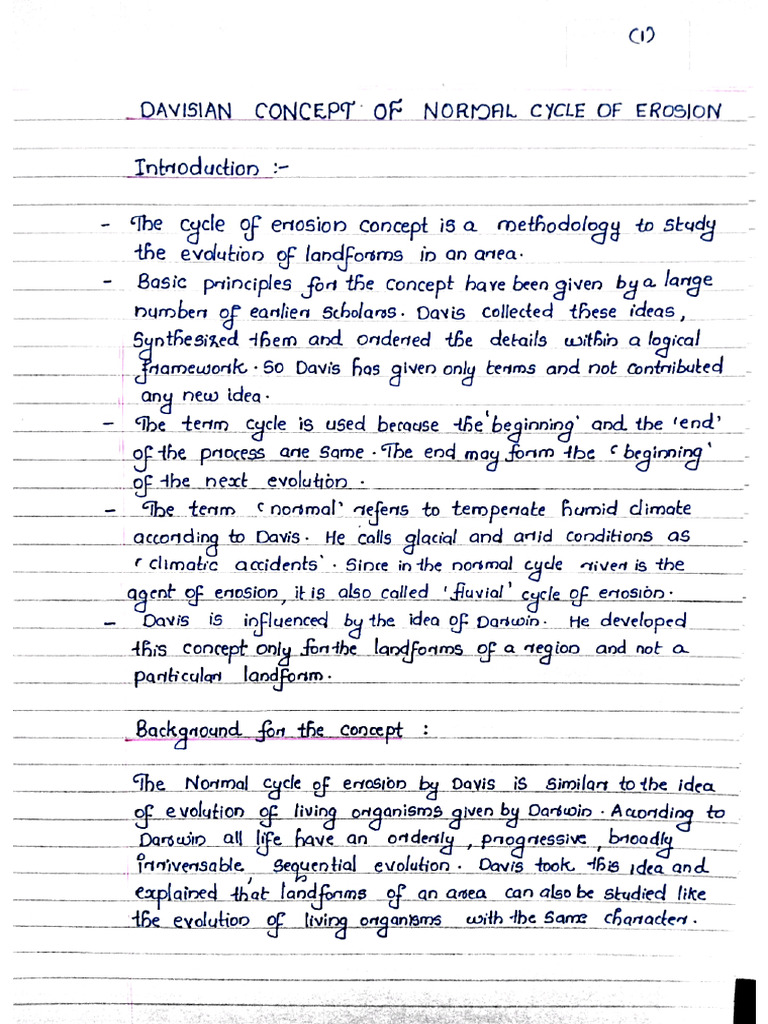 (1)
DAVISIAN CONCEPT OF NORMAL CYCLE OF EROSION
Introduction :-
- The cycle of erosion concept is a methodology to study
the evolution of landforms in an area.
- Basic principles for the concept have been given by a large
number of earlier scholars. Davis collected these ideas,
synthesized them and ordered the details within a logical
framework. So Davis has given only terms and not contributed
any new idea.
- The term cycle is used because the 'beginning' and the 'end'
of the process are same. The end may form the 'beginning'
of the next evolution.
- The term 'normal' refers to temperate humid climate
according to Davis. He calls glacial and arid conditions as
'climatic accidents'. Since in the normal cycle river is the
agent of erosion, it is also called 'fluvial' cycle of erosion.
- Davis is influenced by the idea of Darwin. He developed
this concept only for the landforms of a region and not a
particular landform.
Background for the concept :
The Normal cycle of erosion by Davis is similar to the idea
of evolution of living organisms given by Darwin. According to
Darwin all life have an orderly, progressive, broadly
irriversable, sequential evolution. Davis took this idea and
explained that landforms of an area can also be studied like
the evolution of living organisms with the same character.